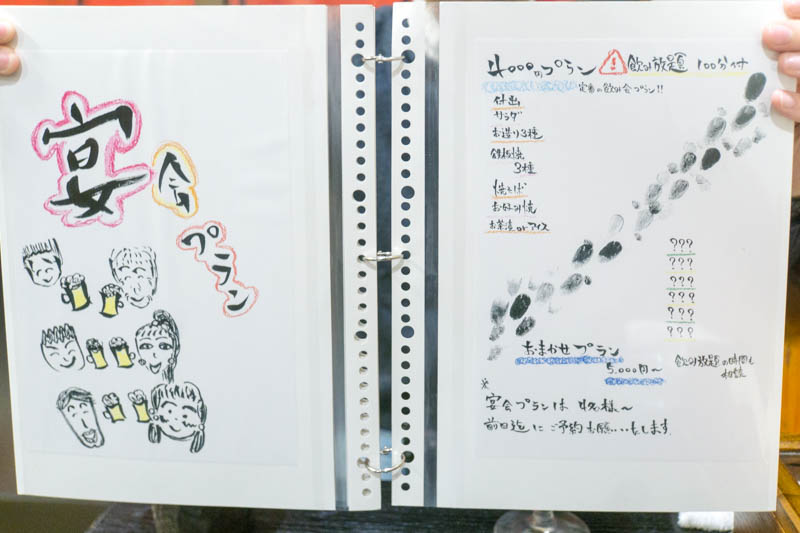 宴会プラン
4000円プラン ! 飲み放題 100分付
定番の飲み会プラン!!
付出
サラダ
お造り3種
鉄板焼
3種
焼そば
お好み焼
お茶漬 or アイス
???
???
???
???
???
???
おまかせプラン
5,000円〜
飲み放題の時間も
相談
※
宴会プランは 4名様〜
前日迄に ご予約お願いします。